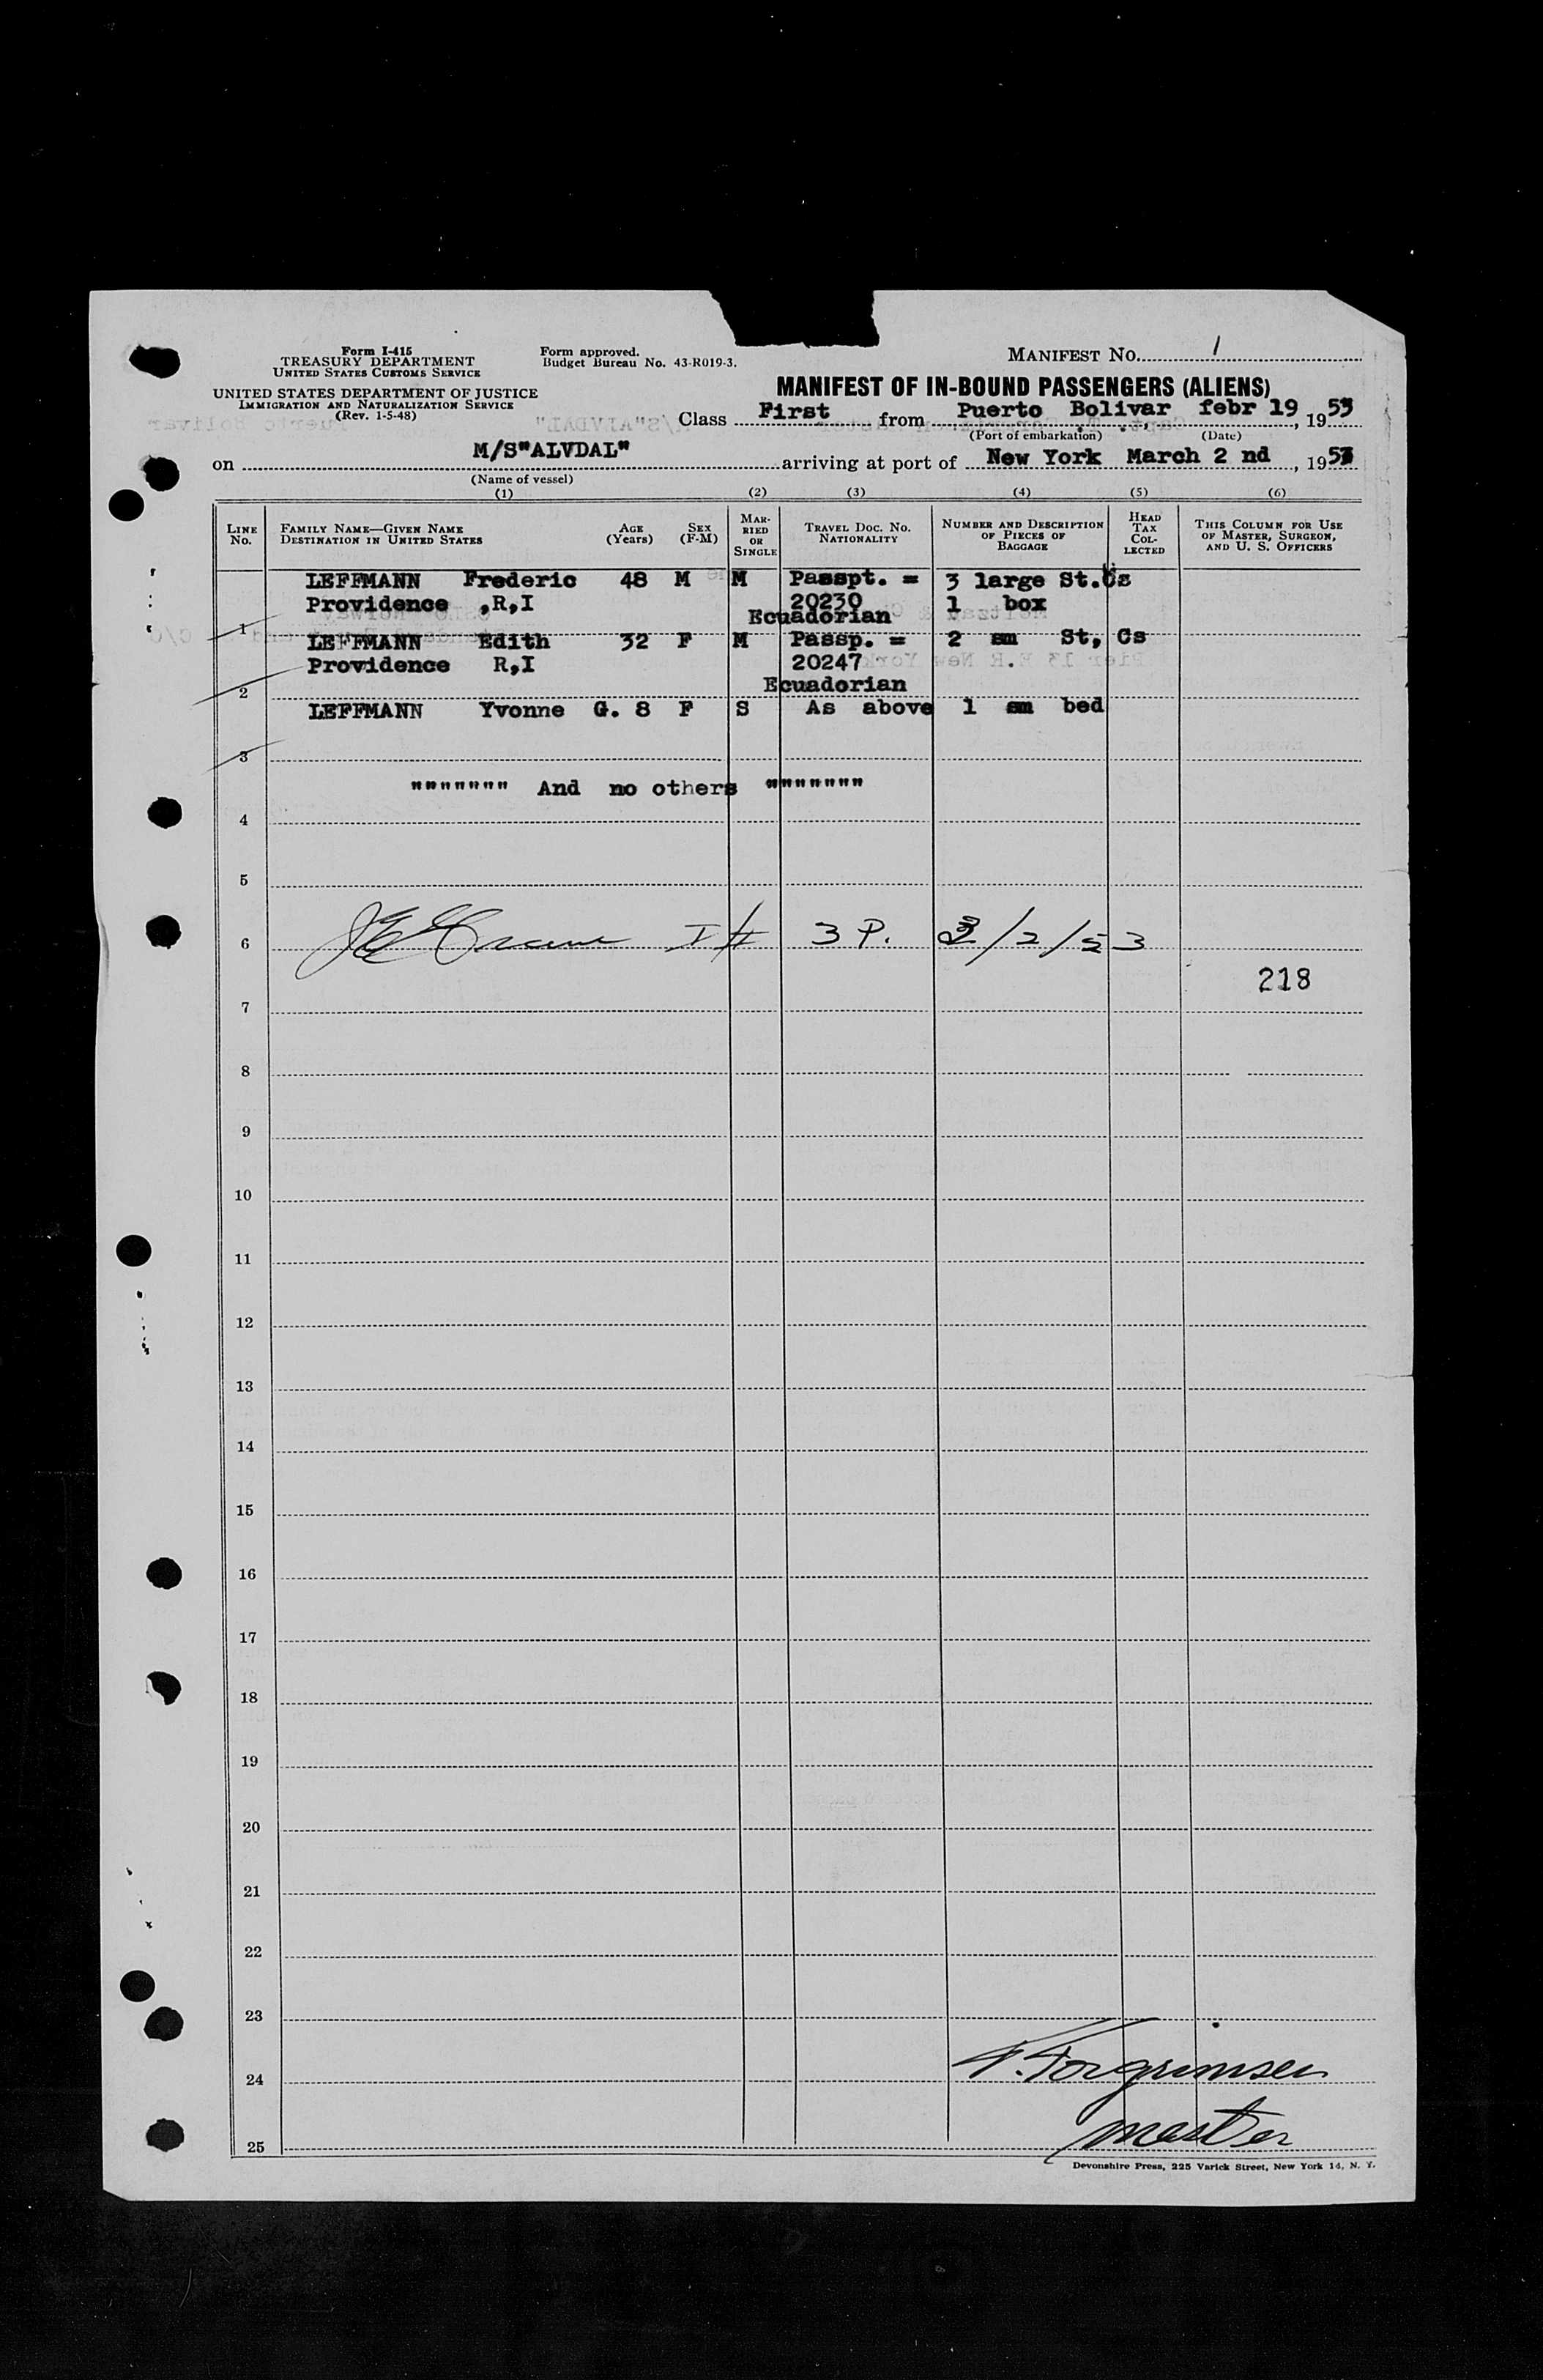 Form I-415
TREASURY DEPARTMENT
UNITED STATES CUSTOMS SERVICE
UNITED STATES DEPARTMENT OF JUSTICE
IMMIGRATION AND NATURALIZATION SERVICE
(Rev. 1-5-48)
Form approved.
Budget Bureau No. 43-R019-3.
MANIFEST NO. 1
MANIFEST OF IN-BOUND PASSENGERS (ALIENS)
Class First from Puerto Bolivar febr 19, 1953
(Port of embarkation) (Date)
on M/S"ALVDAL" arriving at port of New York March 2 nd, 1953
(Name of vessel)
(1) (2) (3) (4) (5) (6)
LINE NO.
FAMILY NAME—GIVEN NAME
DESTINATION IN UNITED STATES
AGE (Years)
SEX (F-M)
MARRIED OR SINGLE
TRAVEL DOC. NO. NATIONALITY
NUMBER AND DESCRIPTION OF PIECES OF BAGGAGE
HEAD TAX COLLECTED
THIS COLUMN FOR USE OF MASTER, SURGEON, AND U. S. OFFICERS
LEFFMANN Frederic 48 M M Passpt. = 3 large St.Cs
Providence ,R,I 20230 1 box
1 Ecuadorian
LEFFMANN Edith 32 F M Passp. = 2 sm St, Cs
Providence R,I 20247
2 Ecuadorian
LEFFMANN Yvonne G. 8 F S As above 1 sm bed
3
""""""" And no others """""""
4
5
6 3 P. 3/2/53
218
7
8
9
10
11
12
13
14
15
16
17
18
19
20
21
22
23
24 T. Torgrimsen
master
25
Devonshire Press, 225 Varick Street, New York 14, N. Y.